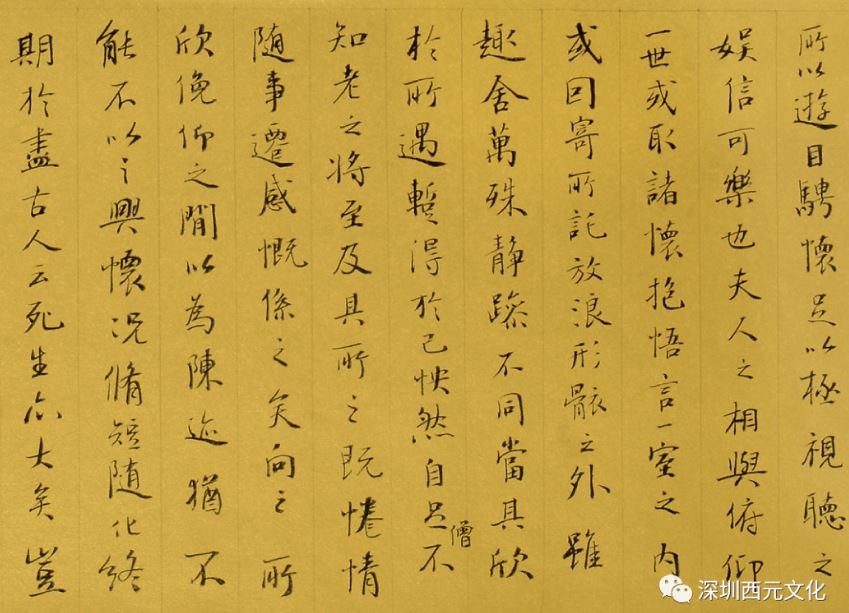 所以遊目騁懷足以極視聽之
娛信可樂也夫人之相與俯仰
一世或取諸懷抱悟言一室之內
或因寄所託放浪形骸之外雖
趣舍萬殊靜躁不同當其欣
於所遇暫得於己怏然自足不
僧
知老之將至及其所之既惓情
隨事遷感慨係之矣向之所
欣俛仰之閒以為陳迹猶不
能不以之興懷況脩短隨化終
期於盡古人云死生亦大矣豈
深圳西元文化